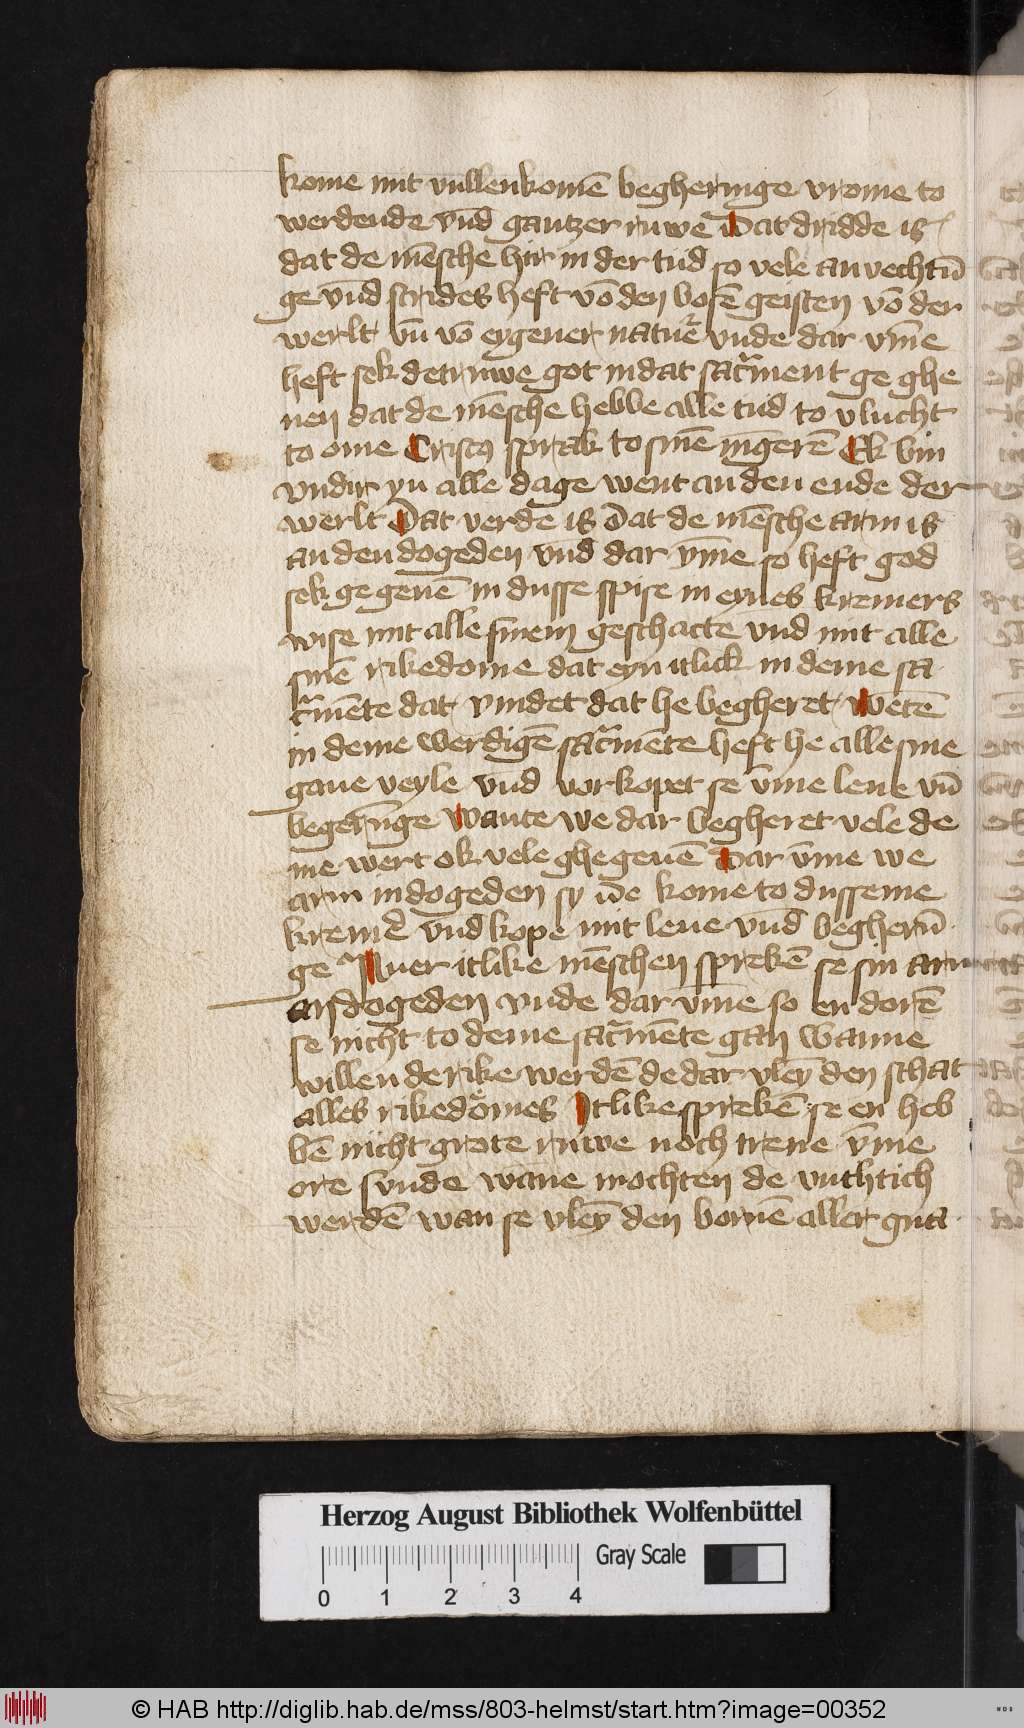 kome mit vullenkomē begheringe vrome to
werdende vn̄d gantzer ruwe Dat dridde is
dat de mēsche hir in der tiid so vele anvechtū
ge vn̄d strides heft vō den bosē geisten vō der
werlt vn̄ vō eygener natuͬe vnde dar vm̄e
heft sek de truwe got in dat sacͬment ge ghe
uen dat de mēsche hebbe alle tiid to vlucht
to ome Cristꝯ sprak to sinē iūgerē Ek bin
vndir yu alle dage went an den ende der
werlt Dat verde is Dat de mēsche arm is
an den dogeden vn̄d dar vm̄e so heft god
sek ge geuē in dusse spise in eynes kremers
wise mit alle sinem geschacte vn̄d mit alle
sinē rikedome dat eyn itlick in deme sa
cͬmēte dat vindet dat he begheret wētē
in deme werdigē sacͬmēte heft he alle sine
gaue veyle vn̄d vorkopet se vm̄e leue vn̄
begerīnge wante we dar begheret vele de
me wert ok vele ghegeuē Dar vm̄e we
arm in dogeden sy de kome to dusseme
kremeͬ vn̄d kope mit leue vn̄d begherū
ge Auer itlike mēschen sprekē se sin arm
an dogeden vnde dar vm̄e so en dorē
se nicht to deme sacͬmēte gan wanne
willen de rike werdē de dar vleȳ den schat
alles rikedomes Itlike sprekē se en heb
bē nicht grote ruwe noch trene vm̄e
ore sunde wāne mochten de vuchtich
werdē wan se vleȳ den bornē aller gna
Herzog August Bibliothek Wolfenbüttel
Gray Scale
0 1 2 3 4
© HAB http://diglib.hab.de/mss/803-helmst/start.htm?image=00352